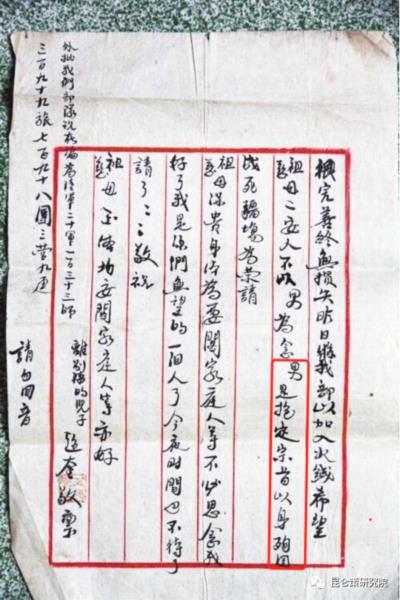 概完善終無損失昨日我部以加入火綫希望
祖慈母二安人不以男為念男是抱定宗旨以身殉国
战死疆場為荣請
祖慈母保貴身体為要闔家庭人等不必思念我
好了我是你們無望的一個人了今夜時間也不待了
請了々々敬祝
祖慈母玉体均安闔家庭人等亦好
離别的兒子 超奎敬禀
外批我們部隊現改編為陸軍二十軍一百三十三師
三百九十九旅七百九十八團三營九連
請勿回音
昆仑策研究院